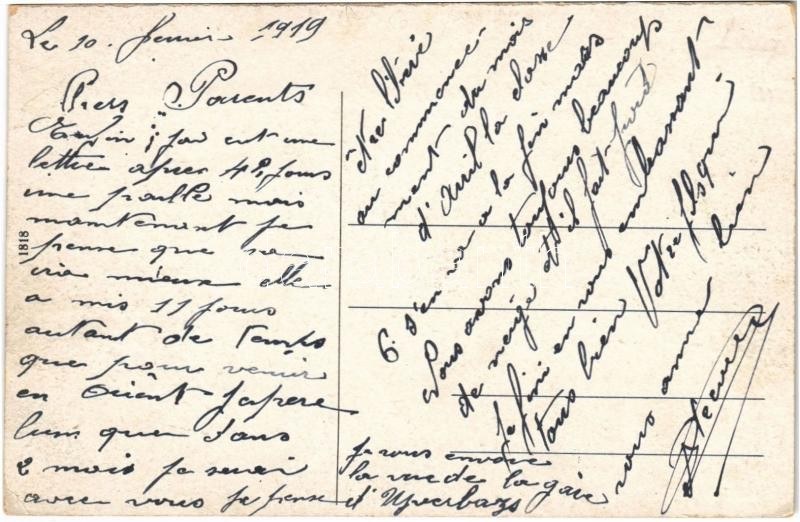 Le 10. fevrier 1919
Chers Parents
Enfin j'ai eut une
lettre apres 42 jours
une paille mais
maintenant je
pense que sa
iria mieux elle
a mis 11 jours
autant de temps
que pour venir
en Orient japere
bien que dans
2 mois je serai
avec vous je pense
être libéré
au commence-
ment du mois
d'Avril la classe
6. s'en va a la fin mars
Nous avons toujours beaucoup
de neige et il fait froid
Je fini en vous embrassant
tous bien Votre fils qui
vous aime bien
je vous envoie
la vue de la gare
d'Uyverbazs
1818